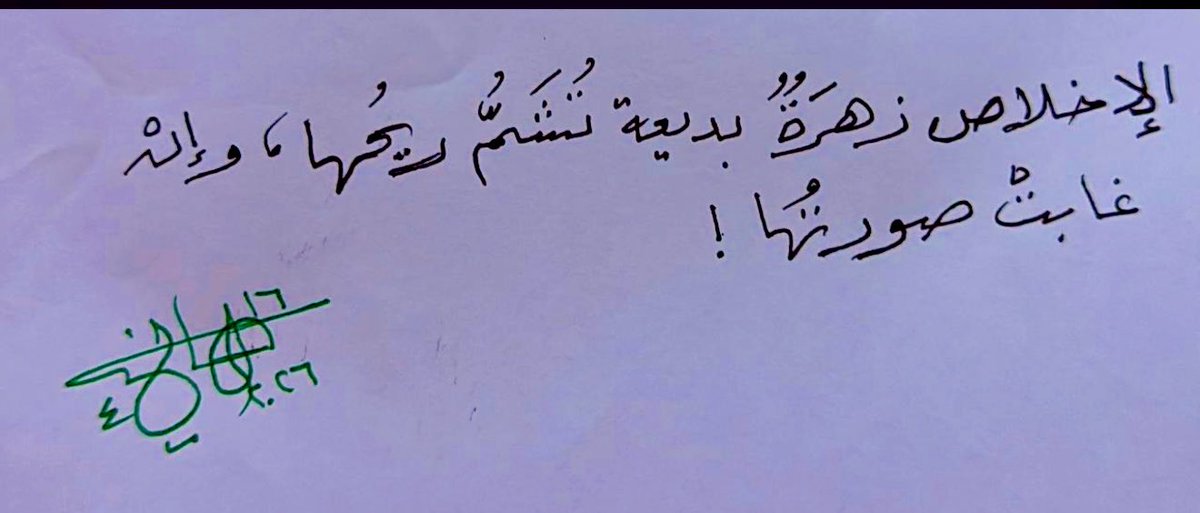 الإخلاص زهرَةٌ بديعة تُشَمُّ ريحُها، وإنْ
غابتْ صورتُها !
١٦
٤
٢٠٢٦